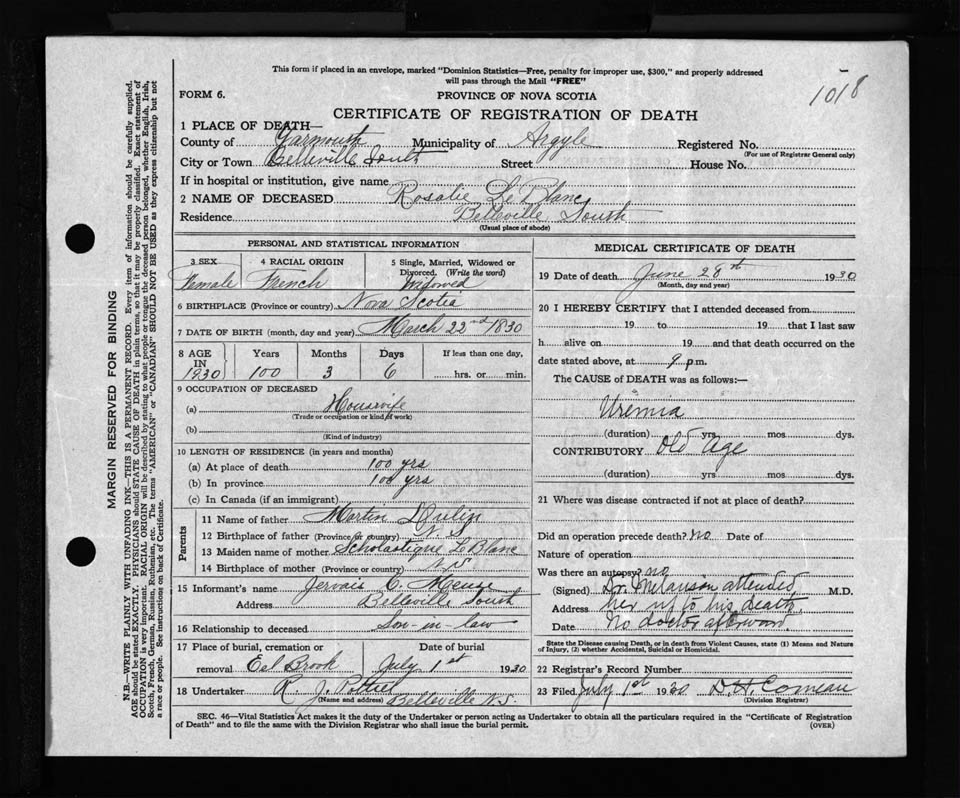 This form if placed in an envelope, marked "Dominion Statistics—Free, penalty for improper use, $300," and properly addressed
will pass through the Mail "FREE"
1018
FORM 6.
PROVINCE OF NOVA SCOTIA
CERTIFICATE OF REGISTRATION OF DEATH
1 PLACE OF DEATH—
County of Yarmouth Municipality of Argyle Registered No.
(For use of Registrar General only)
City or Town Belleville South Street House No.
If in hospital or institution, give name
2 NAME OF DECEASED Rosalie Le Blanc
Residence Belleville South
(Usual place of abode)
PERSONAL AND STATISTICAL INFORMATION
3 SEX
Female
4 RACIAL ORIGIN
French
5 Single, Married, Widowed or
Divorced. (Write the word)
Widowed
6 BIRTHPLACE (Province or country) Nova Scotia
7 DATE OF BIRTH (month, day and year) March 22nd 1830
8 AGE IN 1930
Years 100
Months 3
Days 6
If less than one day,
hrs. or min.
9 OCCUPATION OF DECEASED
(a) Housewife
(Trade or occupation or kind of work)
(b)
(Kind of industry)
10 LENGTH OF RESIDENCE (in years and months)
(a) At place of death 100 yrs
(b) In province 100 yrs
(c) In Canada (if an immigrant)
Parents
11 Name of father Martin
12 Birthplace of father (Province or country) N S
13 Maiden name of mother Scholastique Le Blanc
14 Birthplace of mother (Province or country) N S
15 Informant's name Jervais C. Meuse
Address Belleville South
16 Relationship to deceased Son-in-law
17 Place of burial, cremation or
removal Eel Brook
Date of burial
July 1st 1930
18 Undertaker R. J. Pottier
(Name and address) Belleville N.S.
MEDICAL CERTIFICATE OF DEATH
19 Date of death June 28st 1930
(Month, day and year)
20 I HEREBY CERTIFY that I attended deceased from
19 to 19 that I last saw
h alive on 19 and that death occurred on the
date stated above, at 9 p.m.
The CAUSE OF DEATH was as follows:—
Uremia
(duration) yrs mos dys.
CONTRIBUTORY Old Age
(duration) yrs. mos. dys.
21 Where was disease contracted if not at place of death?
Did an operation precede death? no Date of
Nature of operation
Was there an autopsy? no
(Signed) Dr. Melanson attended M.D.
Address her up to his death.
Date No doctor afterward.
State the Disease causing Death, or in death from Violent Causes, state (1) Means and Nature
of Injury, (2) whether Accidental, Suicidal or Homicidal.
22 Registrar's Record Number
23 Filed July 1st 1930 D. H. Comeau
(Division Registrar)
SEC. 46—Vital Statistics Act makes it the duty of the Undertaker or person acting as Undertaker to obtain all the particulars required in the "Certificate of Registration
of Death" and to file the same with the Division Registrar who shall issue the burial permit.
(OVER)
MARGIN RESERVED FOR BINDING
N.B.—WRITE PLAINLY WITH UNFADING INK—THIS IS A PERMANENT RECORD. Every item of information should be carefully supplied.
AGE should be stated EXACTLY. PHYSICIANS should STATE CAUSE OF DEATH in plain terms, so that it may be properly classified. Exact statement of
OCCUPATION is very important. RACIAL ORIGIN will be described by stating to what people or tongue the deceased person belonged, whether English, Irish,
Scotch, French, German, Russian, Ruthenian, etc. The terms "AMERICAN" or "CANADIAN" SHOULD NOT BE USED as they express citizenship but not
a race or people. See instructions on back of Certificate.